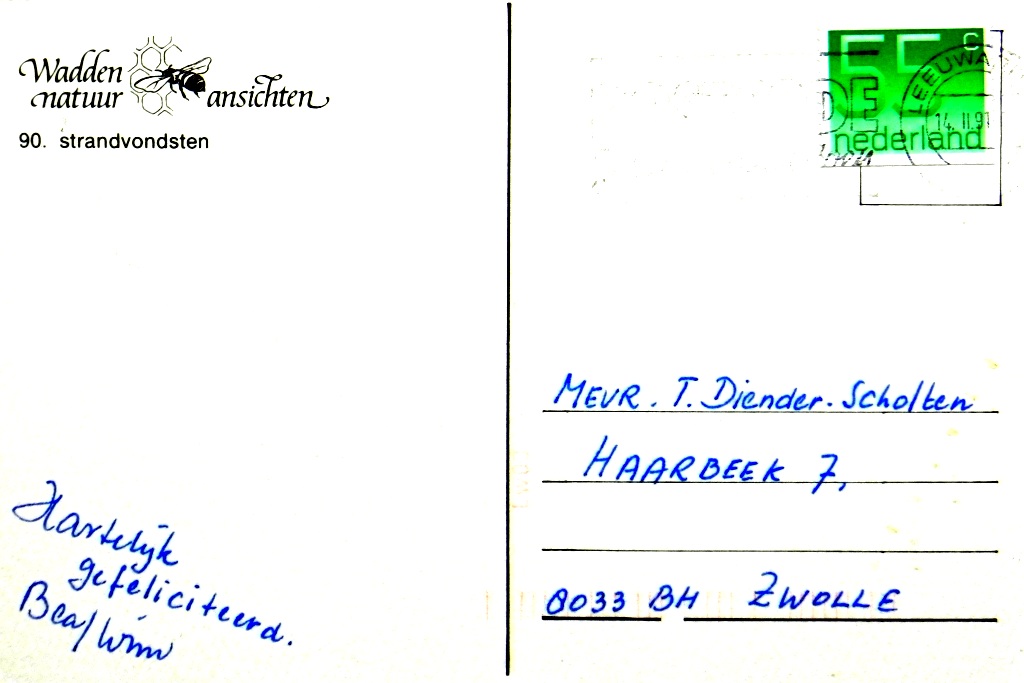 Wadden
natuur ansichten
90. strandvondsten
55 c
nederland
LEEUWA
14.II.91
MEVR. T. Diender-Scholten
HAARBEEK 7,
8033 BH ZWOLLE
Hartelijk
gefeliciteerd.
Bea/Wim